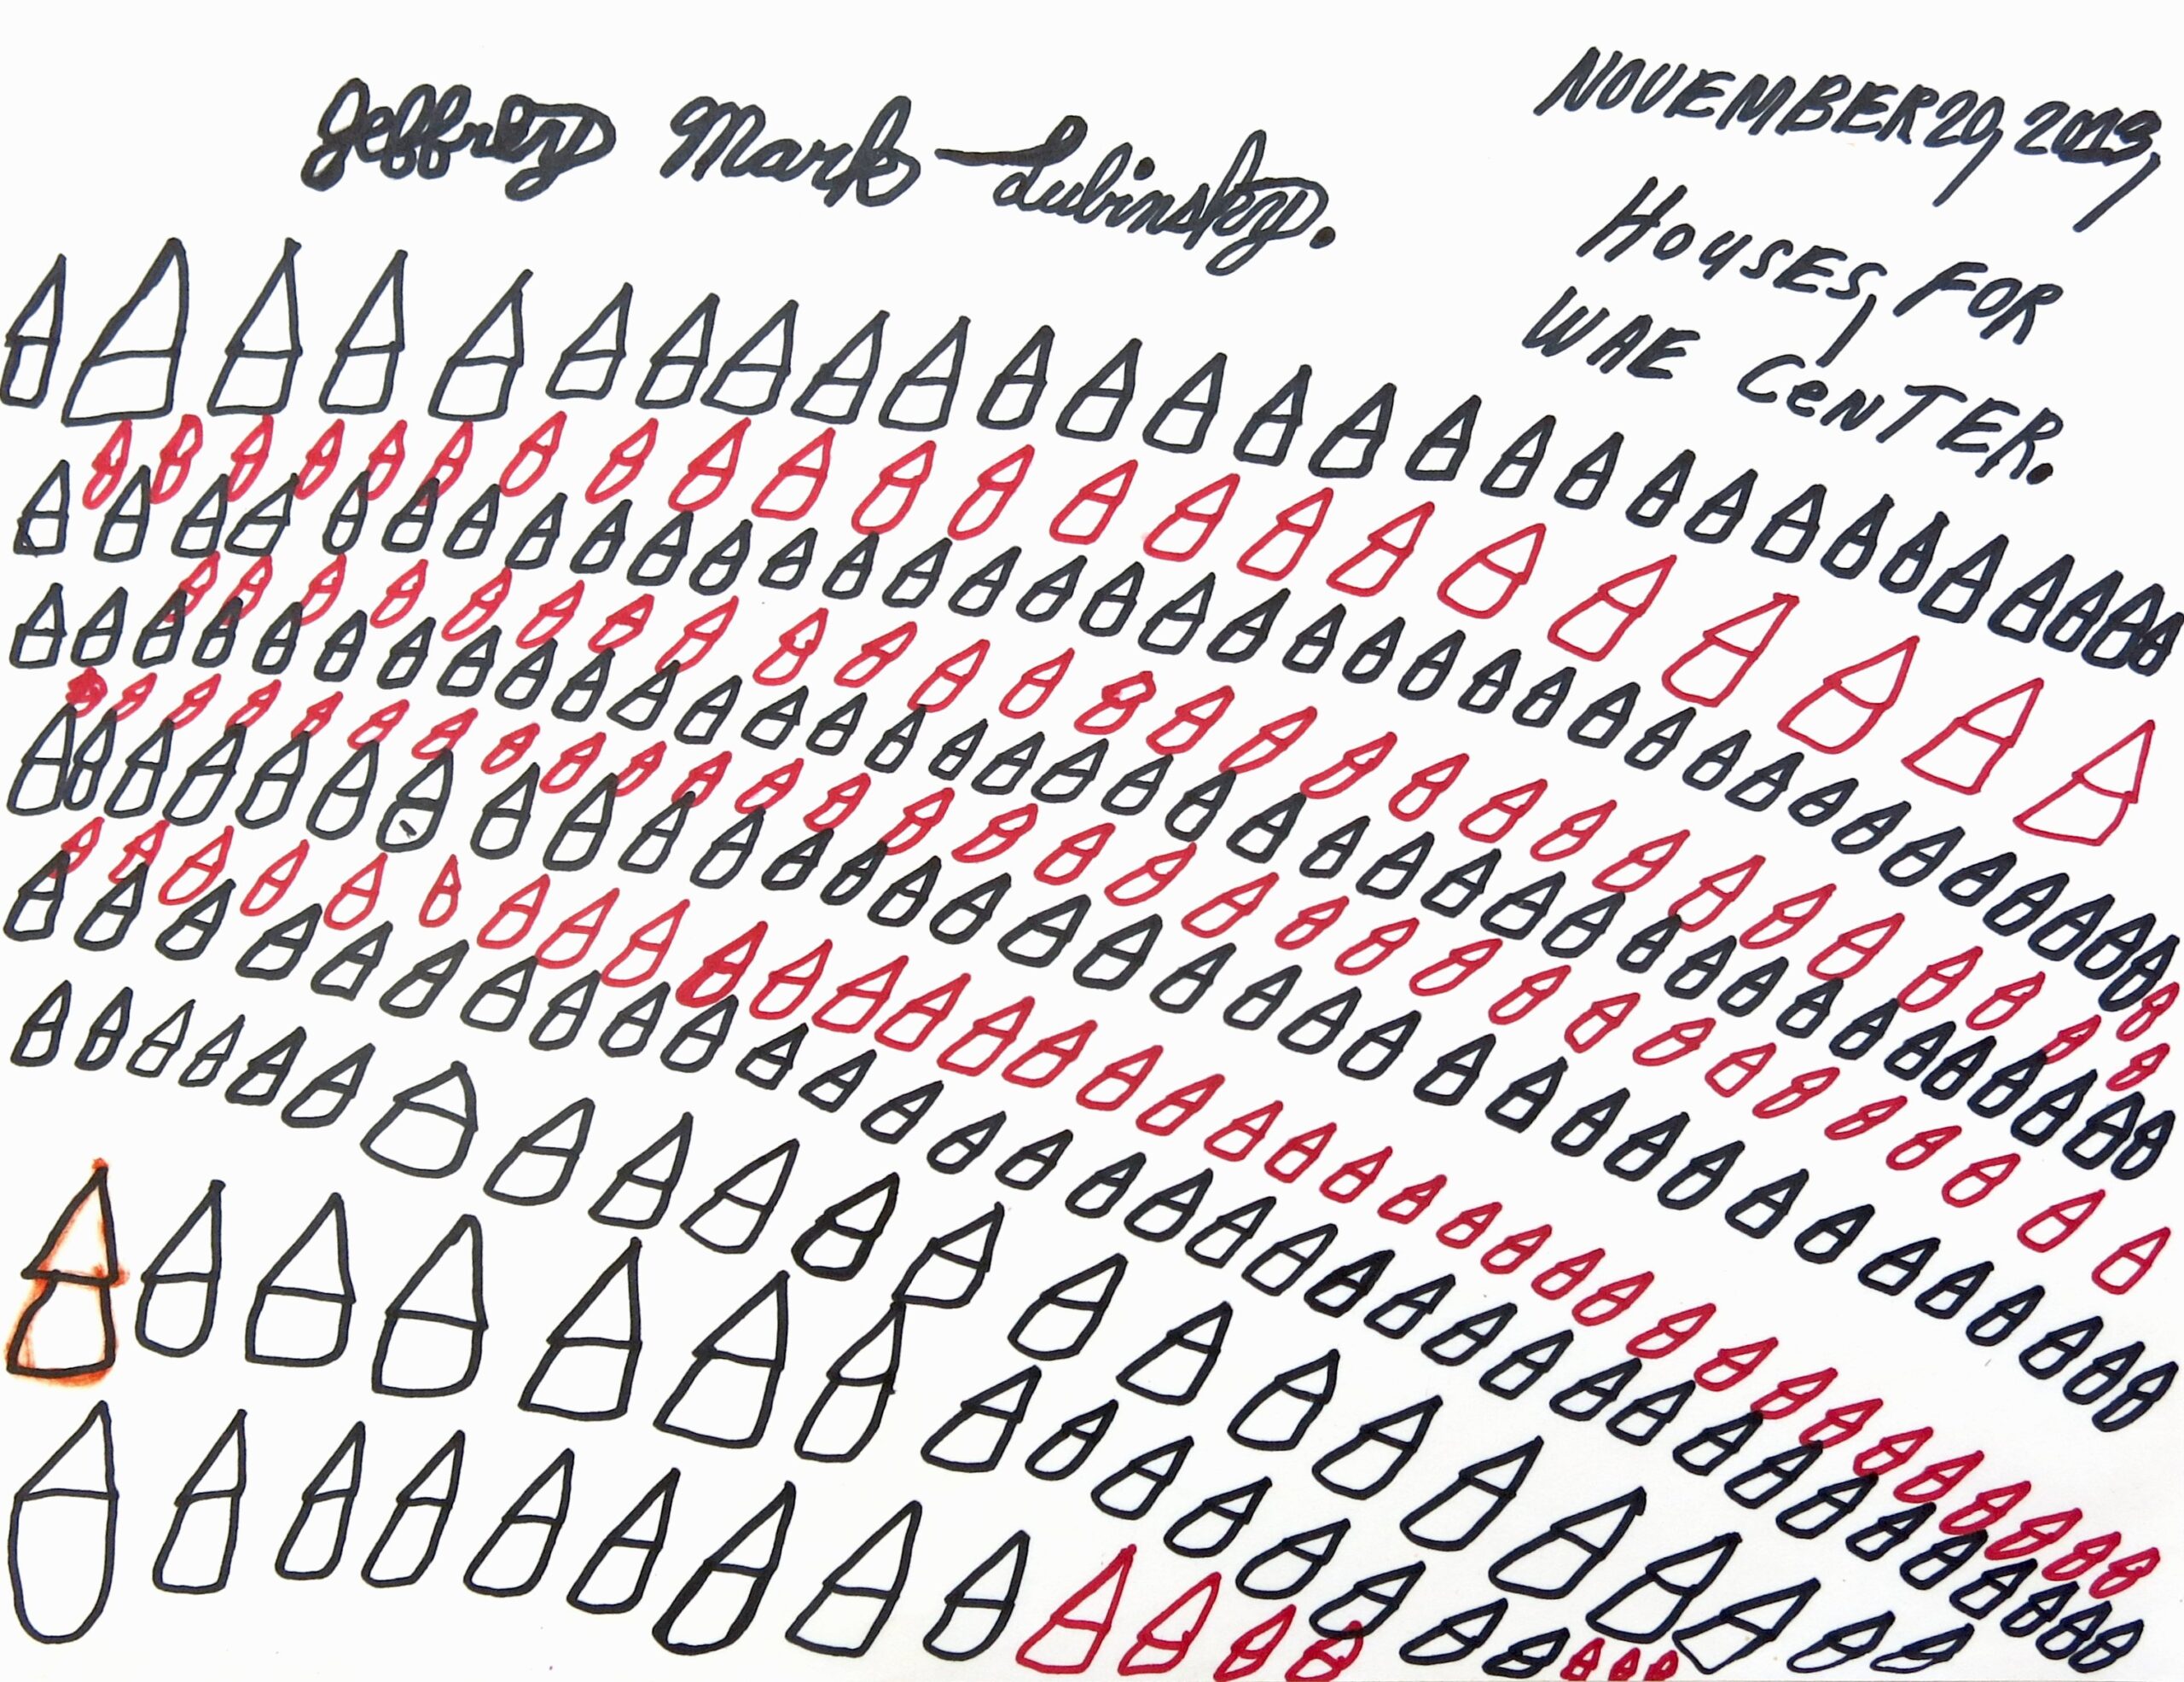 Jeffrey Mark Lubinsky.
NOVEMBER 29, 2013,
HOUSES, FOR
WAE CENTER.